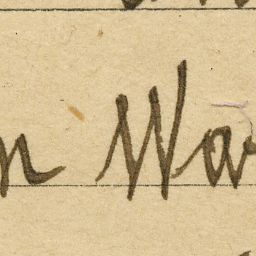 n Wa